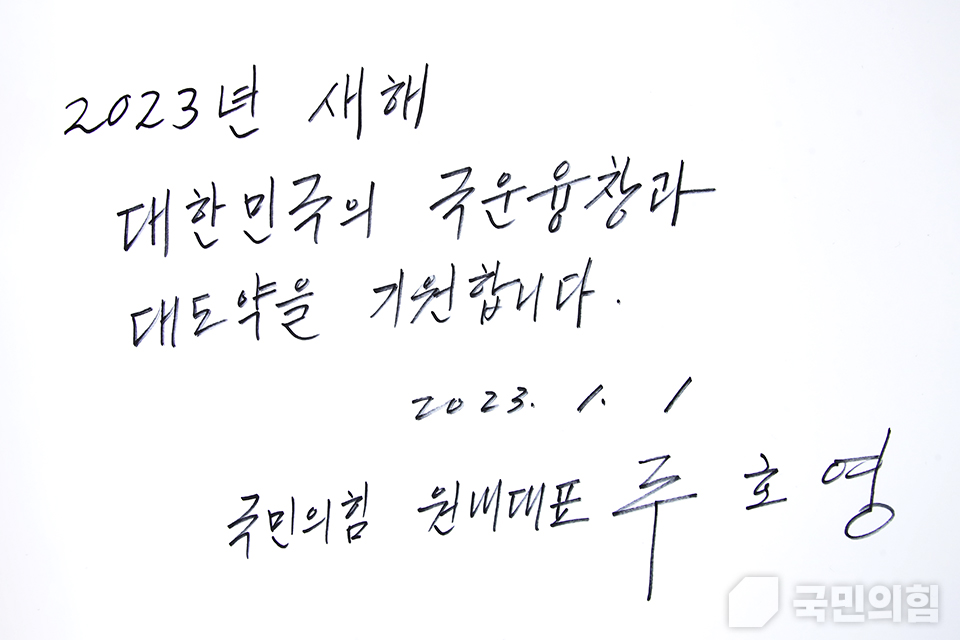 2023년 새해
대한민국의 국운융창과
대도약을 기원합니다.
2023. 1. 1
국민의힘 원내대표 주호영
국민의힘